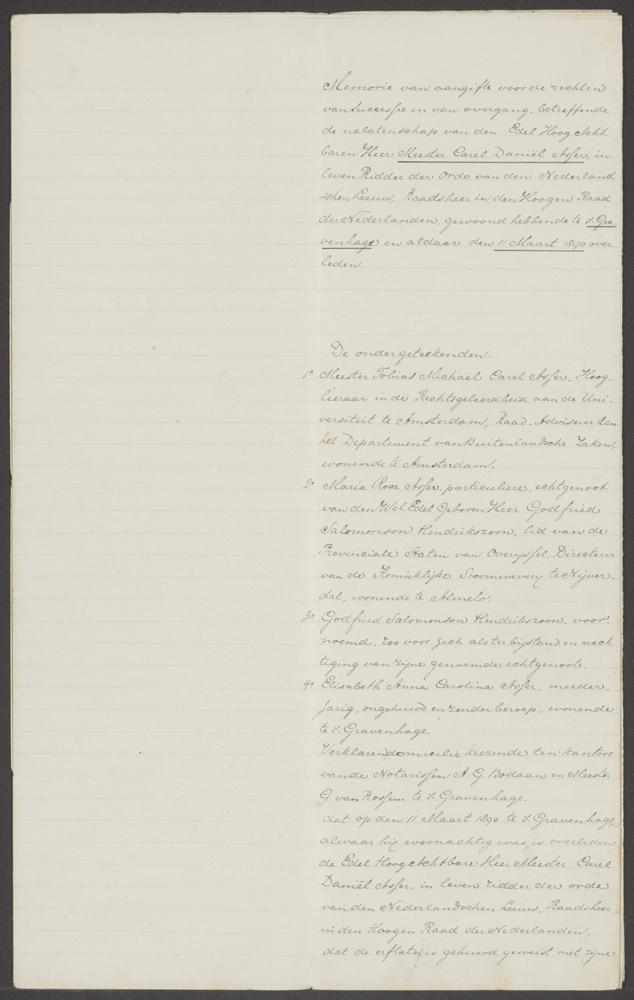 Memorie van aangifte voor de rechten
van Successie en van overgang, betreffende
de nalatenschap van den Edel Hoog Acht
baren Heer Meester Carel Daniël Asser, in
leven Ridder der Orde van den Nederland
schen Leeuw, Raadsheer in den Hoogen Raad
der Nederlanden, gewoond hebbende te 's Gra
venhage en aldaar den 11 Maart 1890 over
leden.
De ondergeteekenden.
1° Meester Tobias Michaël Carel Asser, Hoog
leeraar in de Rechtsgeleerdheid aan de Uni-
versiteit te Amsterdam, Raad-Adviseur aan
het Departement van Buitenlandsche Zaken,
wonende te Amsterdam.
2° Maria Rosa Asser, particuliere, echtgenoot
van den Wel Edel Geboren Heer Godfried
Salomonson Hendrikszoon, lid van de
Provinciale Staten van Overyssel, Directeur
van de Koninklijke Stoomweverij te Nijver-
dal, wonende te Almelo.
3° Godfried Salomonson Hendrikszoon, voor-
noemd, zoo voor zich als ter bijstand en mach
tiging van zijne genoemde echtgenoote.
4° Elisabeth Anna Carolina Asser, meerder-
jarig, ongehuwd en zonder beroep, wonende
te 's Gravenhage.
Verklaren domicilie kiezende ten kantore
van de Notarissen A. G. Bodaan en Meester
G van Rossem te 's Gravenhage.
dat op den 11 Maart 1890 te 's Gravenhage
alwaar hij woonachtig was, is overleden
de Edel Hoog Achtbare Heer Meester Carel
Daniël Asser, in leven ridder der orde
van den Nederlandschen Leeuw, Raadsheer
in den Hoogen Raad der Nederlanden,
dat de erflater is gehuwd geweest met zijne